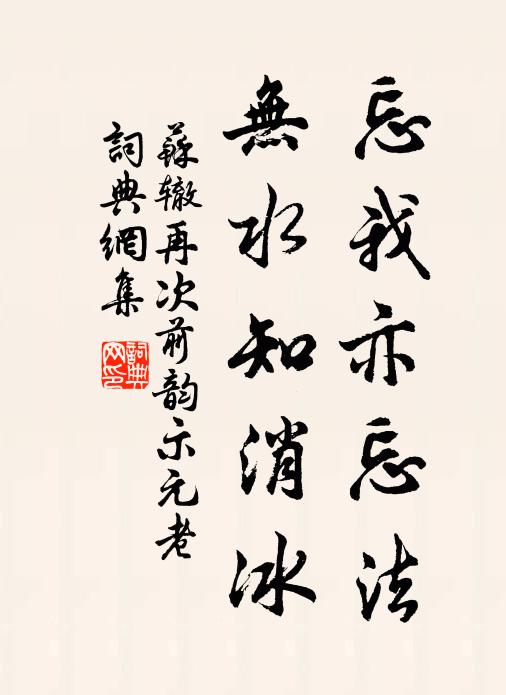 忘我亦忘法
無水知消冰
蘇辙再次前韵示元老
詞典網集
詞典
网印